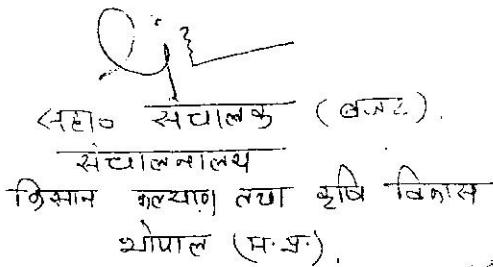 सहा० संचालक (बजट).
संचालनालय
किसान कल्याण तथा कृषि विकास
भोपाल (म.प्र.)